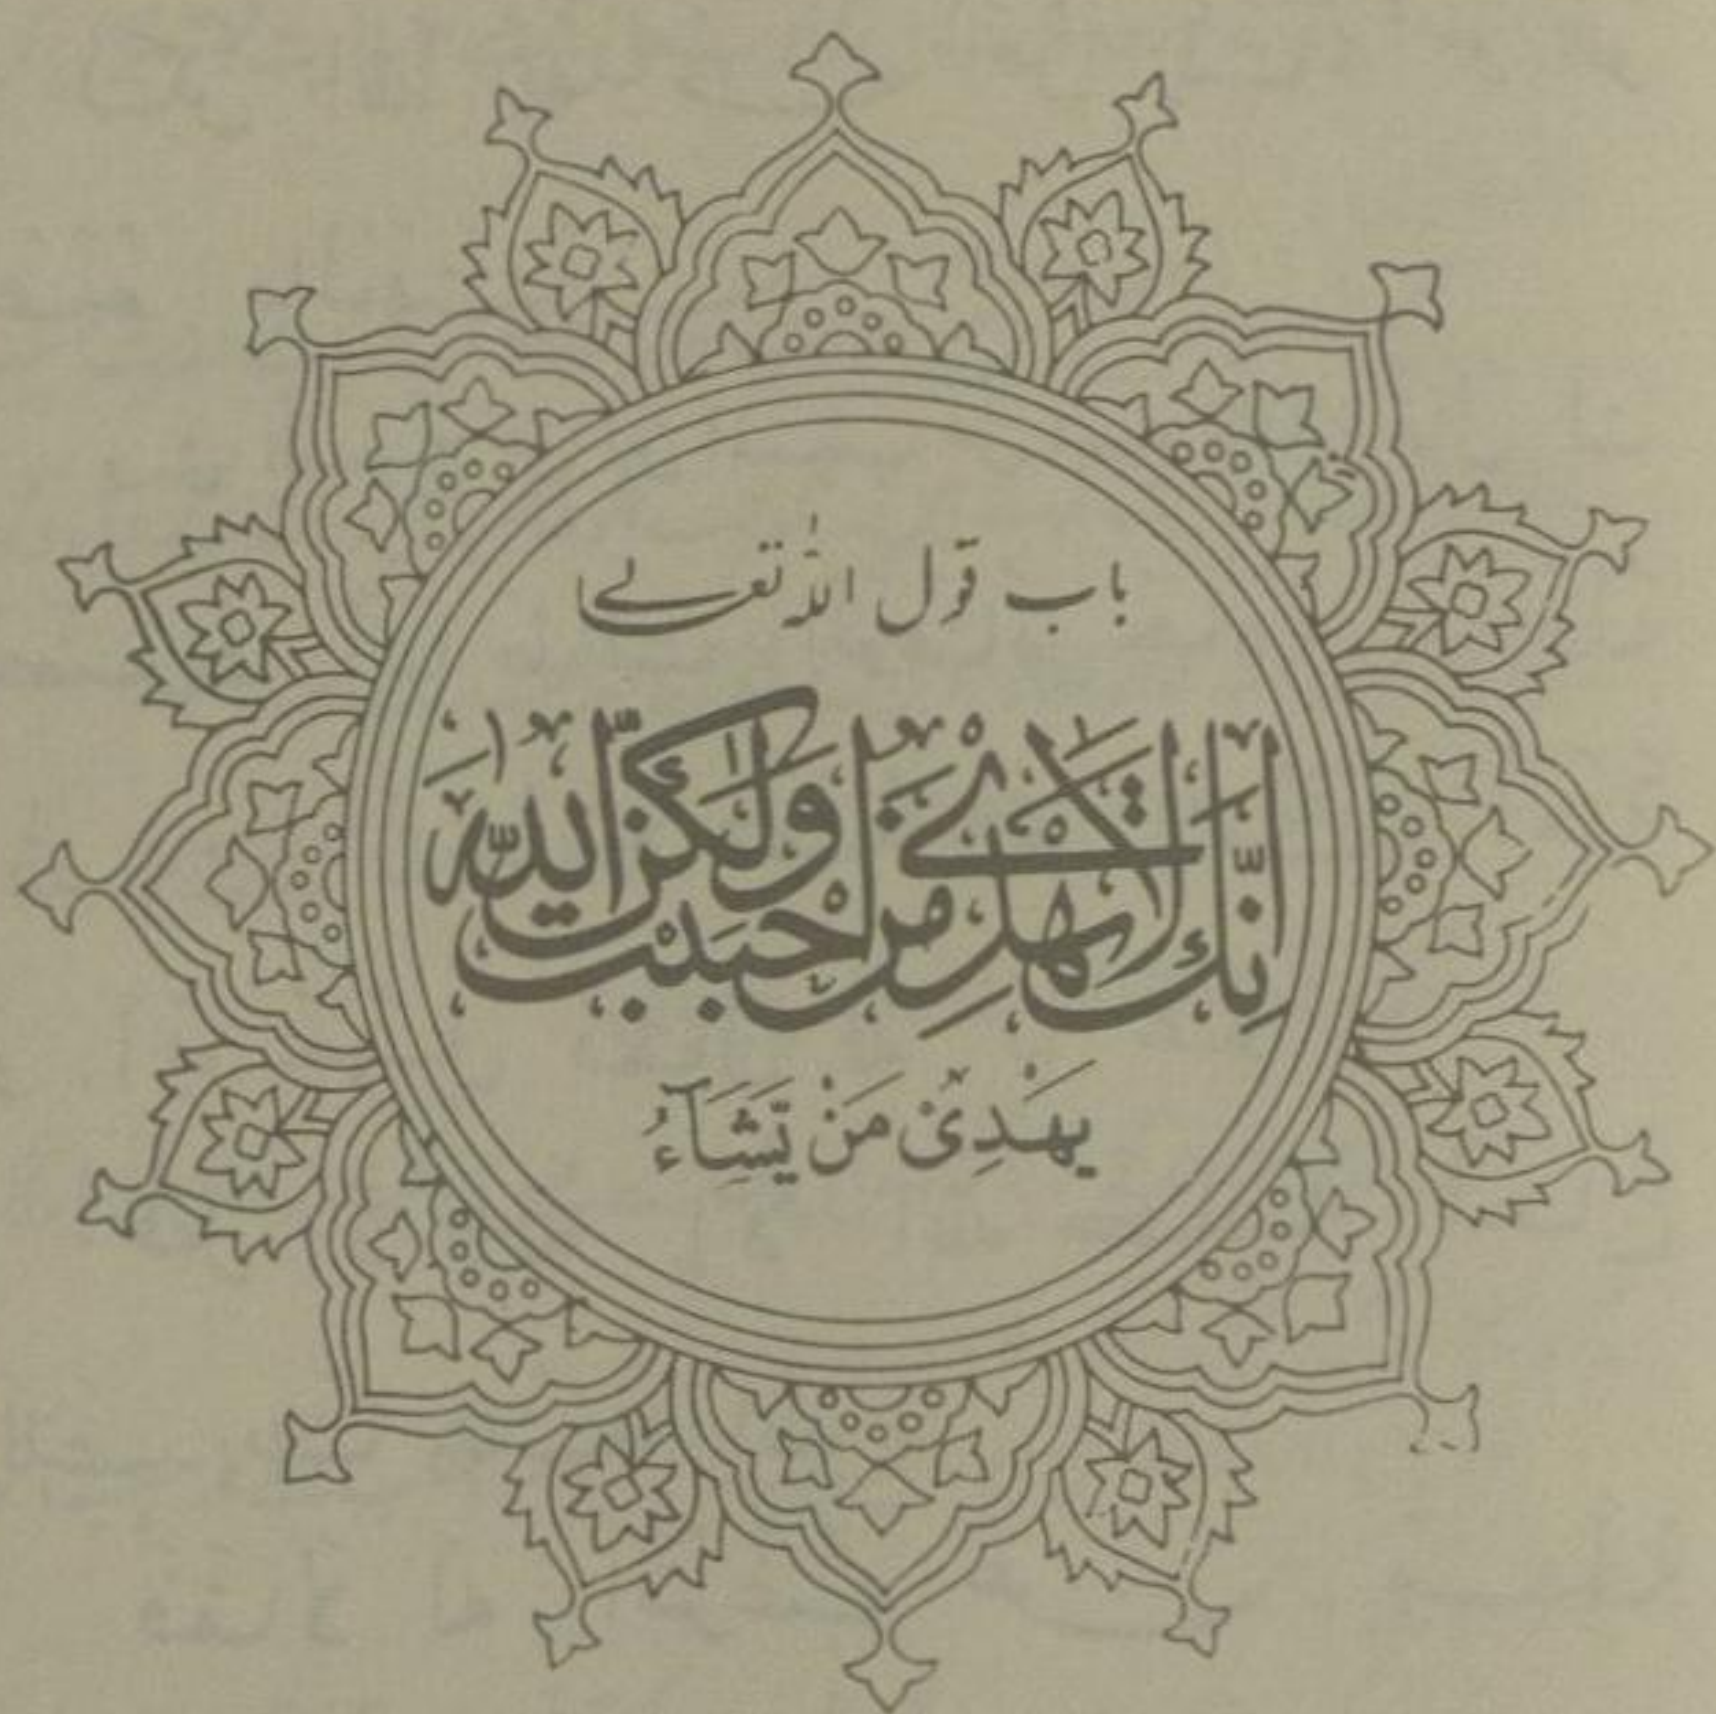 باب قول اللہ تعالی
اِنَّكَ لَا تَهْدِیْ مَنْ اَحْبَبْتَ وَلٰكِنَّ اللّٰهَ
یَهْدِیْ مَنْ یَّشَآءُ